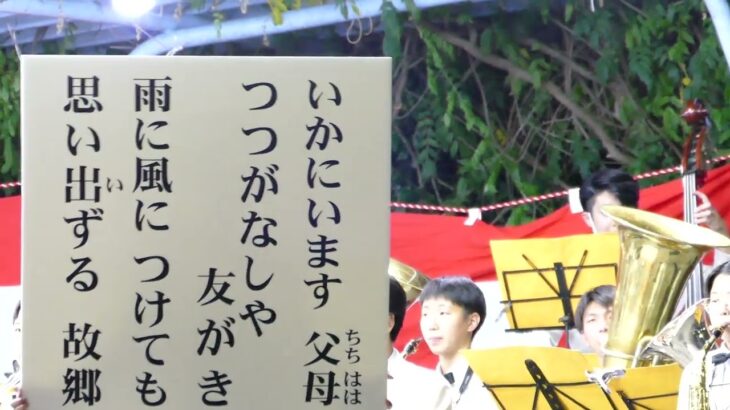 いかにいます 父母
ちち はは
つつがなしや
友がき
雨に風に つけても
思い出ずる 故郷
い